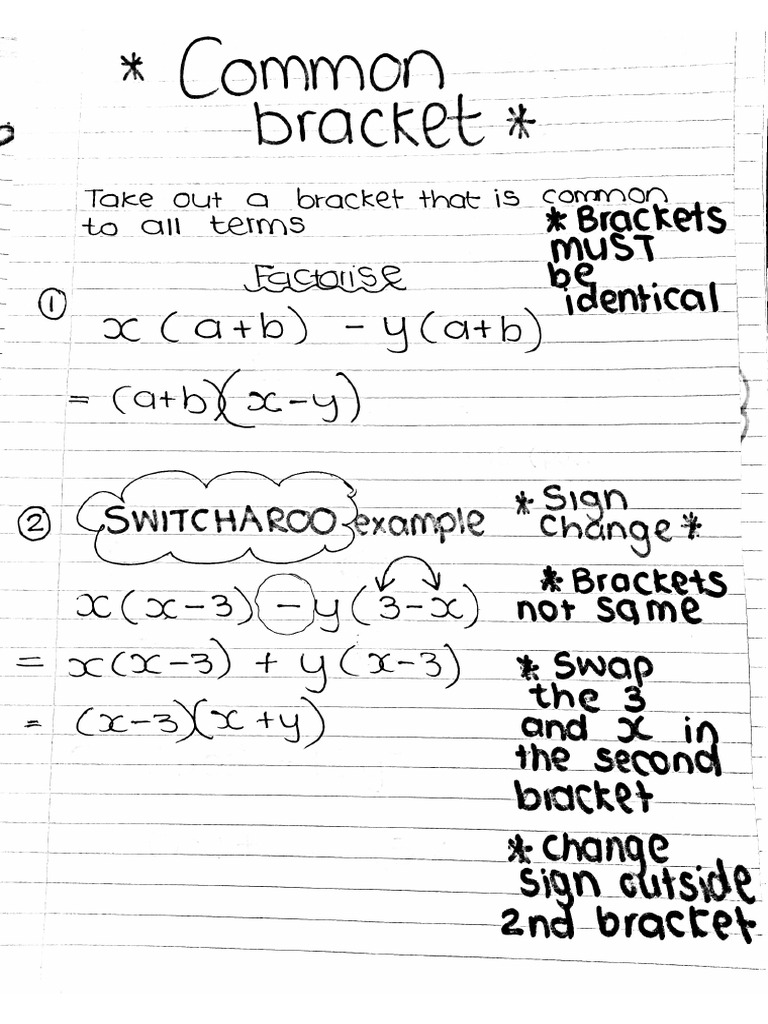 * Common
bracket *
Take out a bracket that is common
to all terms
* Brackets
must
be
identical
Factorise
① x (a+b) - y (a+b)
= (a+b)(x-y)
② SWITCHAROO example
* Sign
change *
x(x-3) - y(3-x)
* Brackets
not same
= x(x-3) + y(x-3)
= (x-3)(x+y)
* Swap
the 3
and x in
the second
bracket
* change
sign outside
2nd bracket